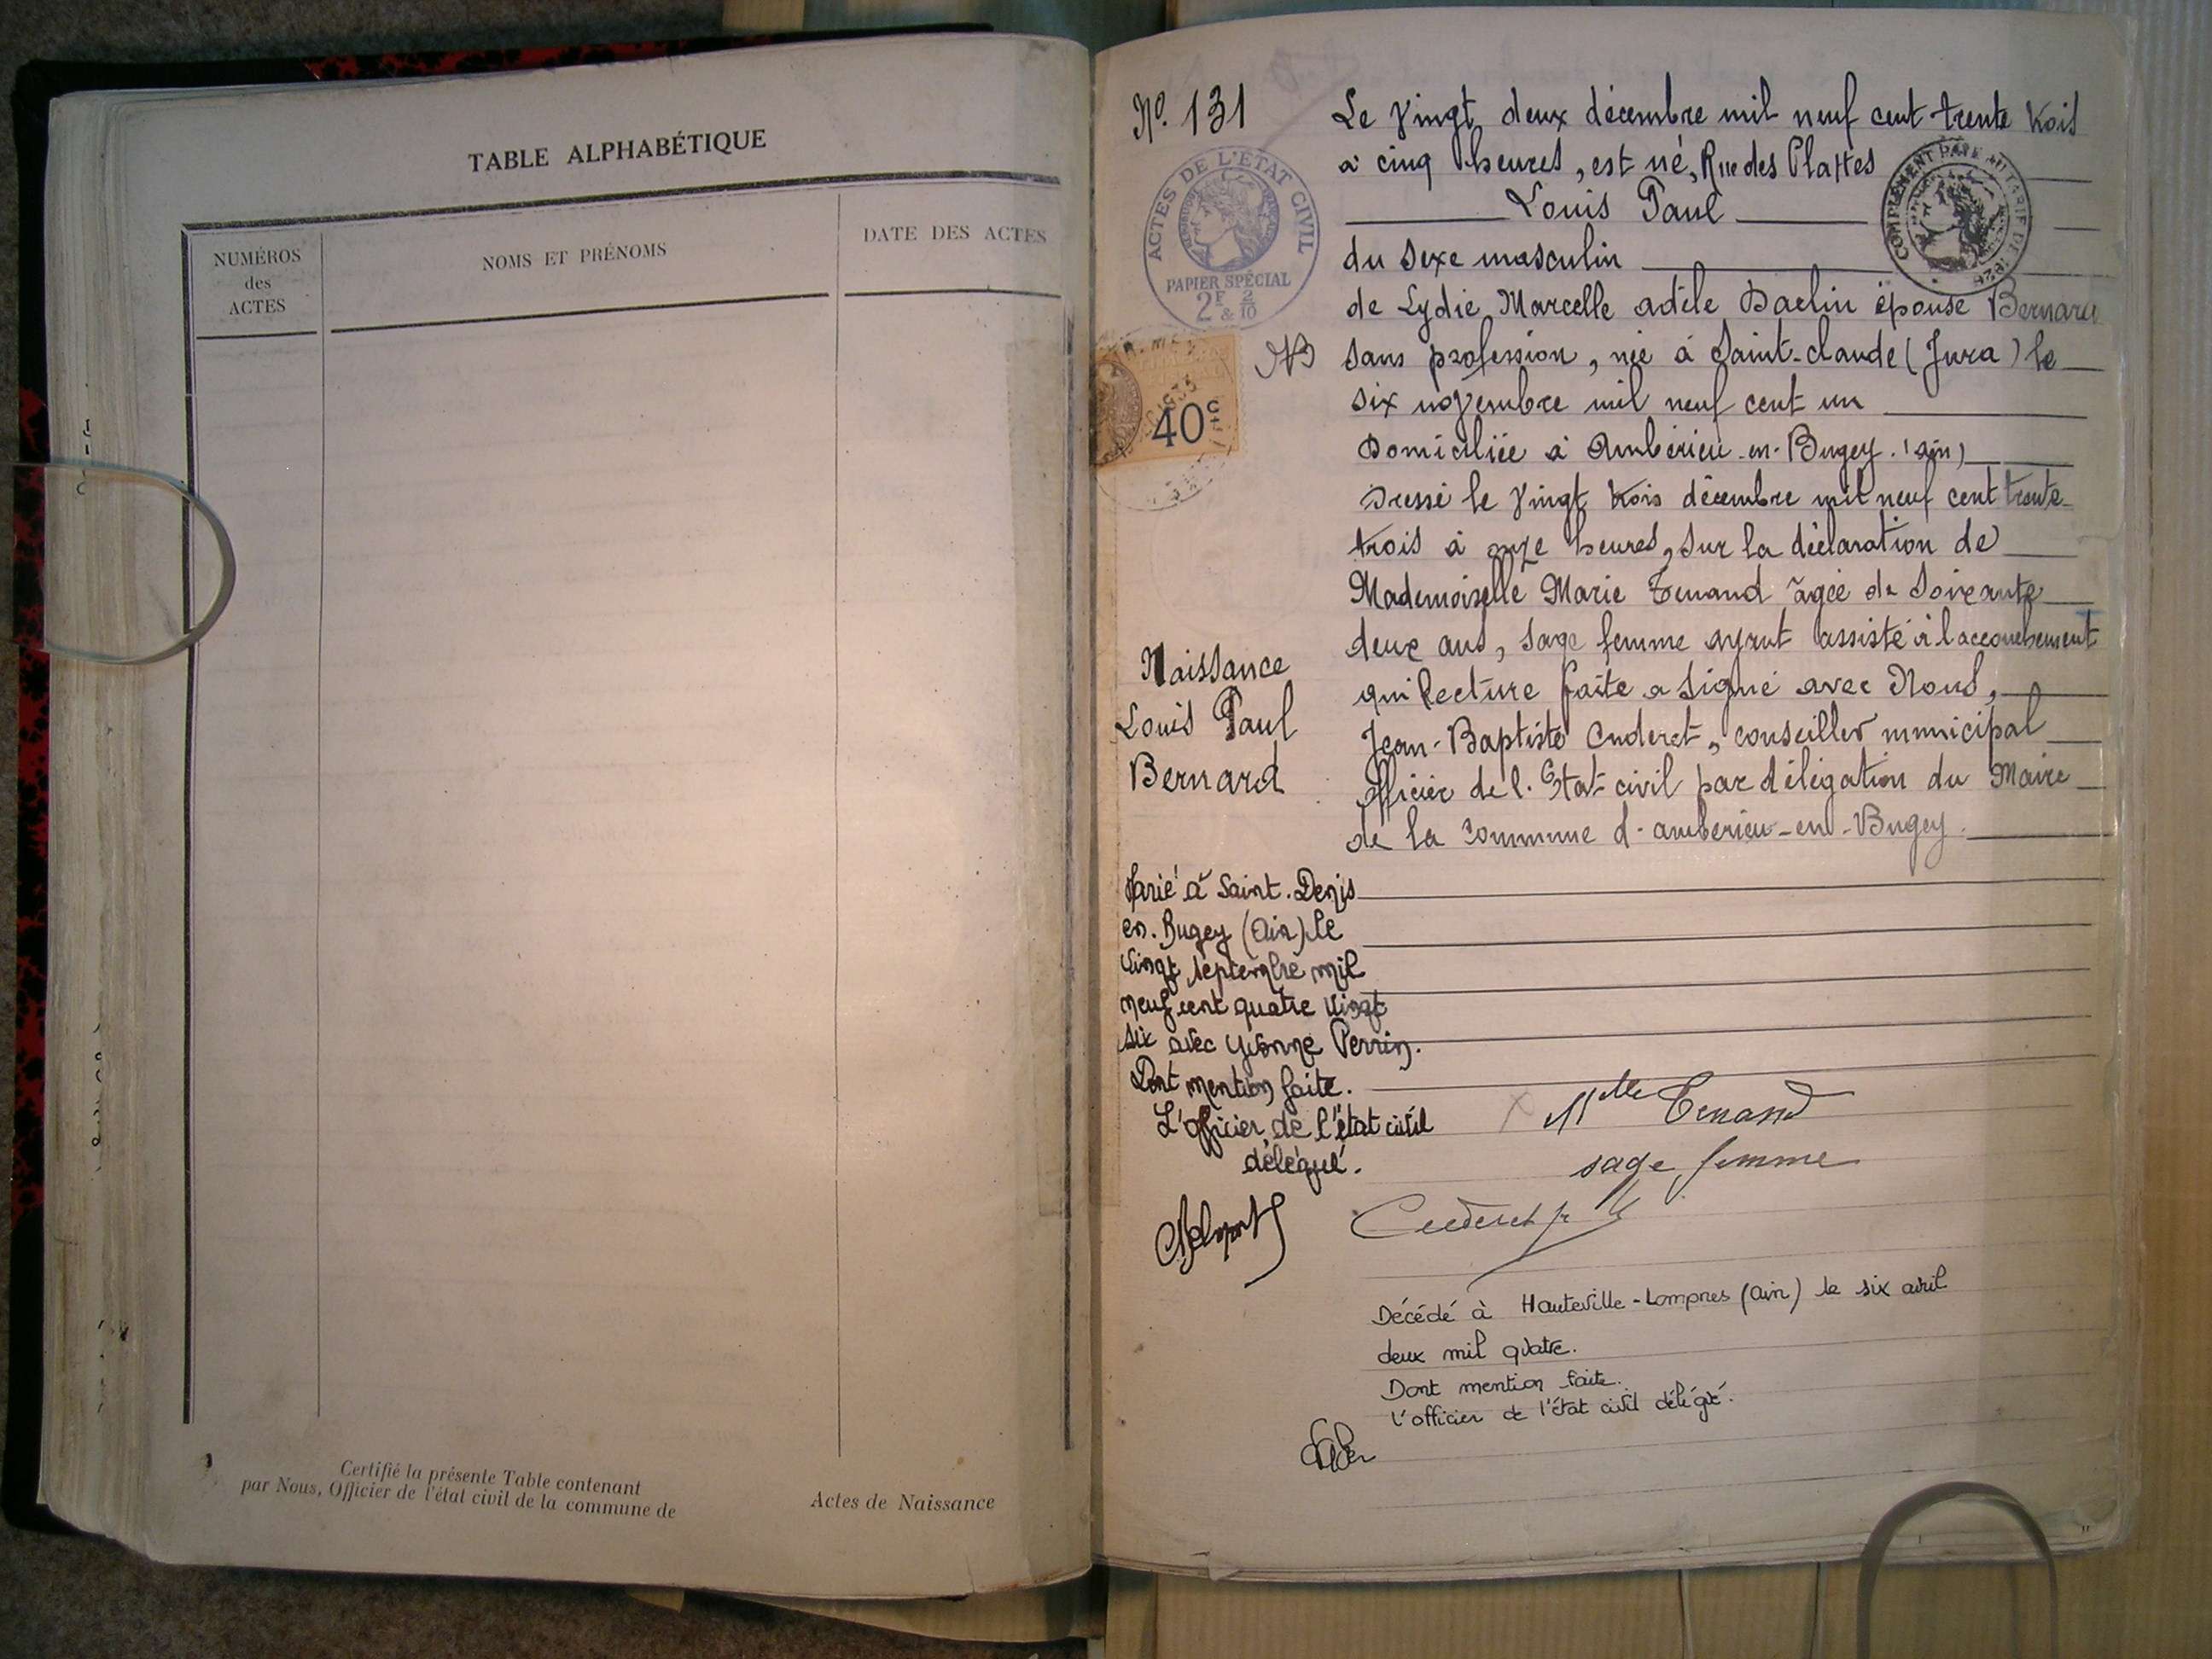 TABLE ALPHABÉTIQUE
NUMÉROS
des
ACTES
NOMS ET PRÉNOMS
DATE DES ACTES
Certifié la présente Table contenant
par Nous, Officier de l'état civil de la commune de
Actes de Naissance
No. 131
ACTES DE L'ETAT CIVIL
PAPIER SPÉCIAL
2F & 2/10
40c
Naissance
Louis Paul
Bernard
Le Vingt deux décembre mil neuf cent trente trois
à cinq heures, est né, Rue des Plattes
Louis Paul
COMPLEMENT PAYE AU TARIF DE
du sexe masculin
de Lydie Marcelle adèle épouse Bernard
sans profession, née à Saint-claude (Jura) le
six novembre mil neuf cent un
Domiciliée à Ambérieu-en-Bugey. (ain)
Dressé le Vingt trois décembre mil neuf cent trente-
trois à onze heures, sur la déclaration de
Mademoiselle Marie Tenand âgée de soixante
deux ans, sage femme ayant assisté à l'accouchement
qui lecture faite a signé avec Nous,
Jean-Baptiste Cuderet, conseiller municipal
officier de l'Etat civil par délégation du Maire
de la Commune d'ambérieu-en-Bugey.
Marié à Saint.Denis
en.Bugey (Ain) le
vingt septembre mil
neuf cent quatre vingt
six avec Yvonne Perrin.
Dont mention faite.
L'officier de l'état civil
délégué.
Mlle Tenand
sage femme
Cuderet
Décédé à Hauteville-Lompnes (Ain) le six avril
deux mil quatre.
Dont mention faite.
L'officier de l'état civil délégué.